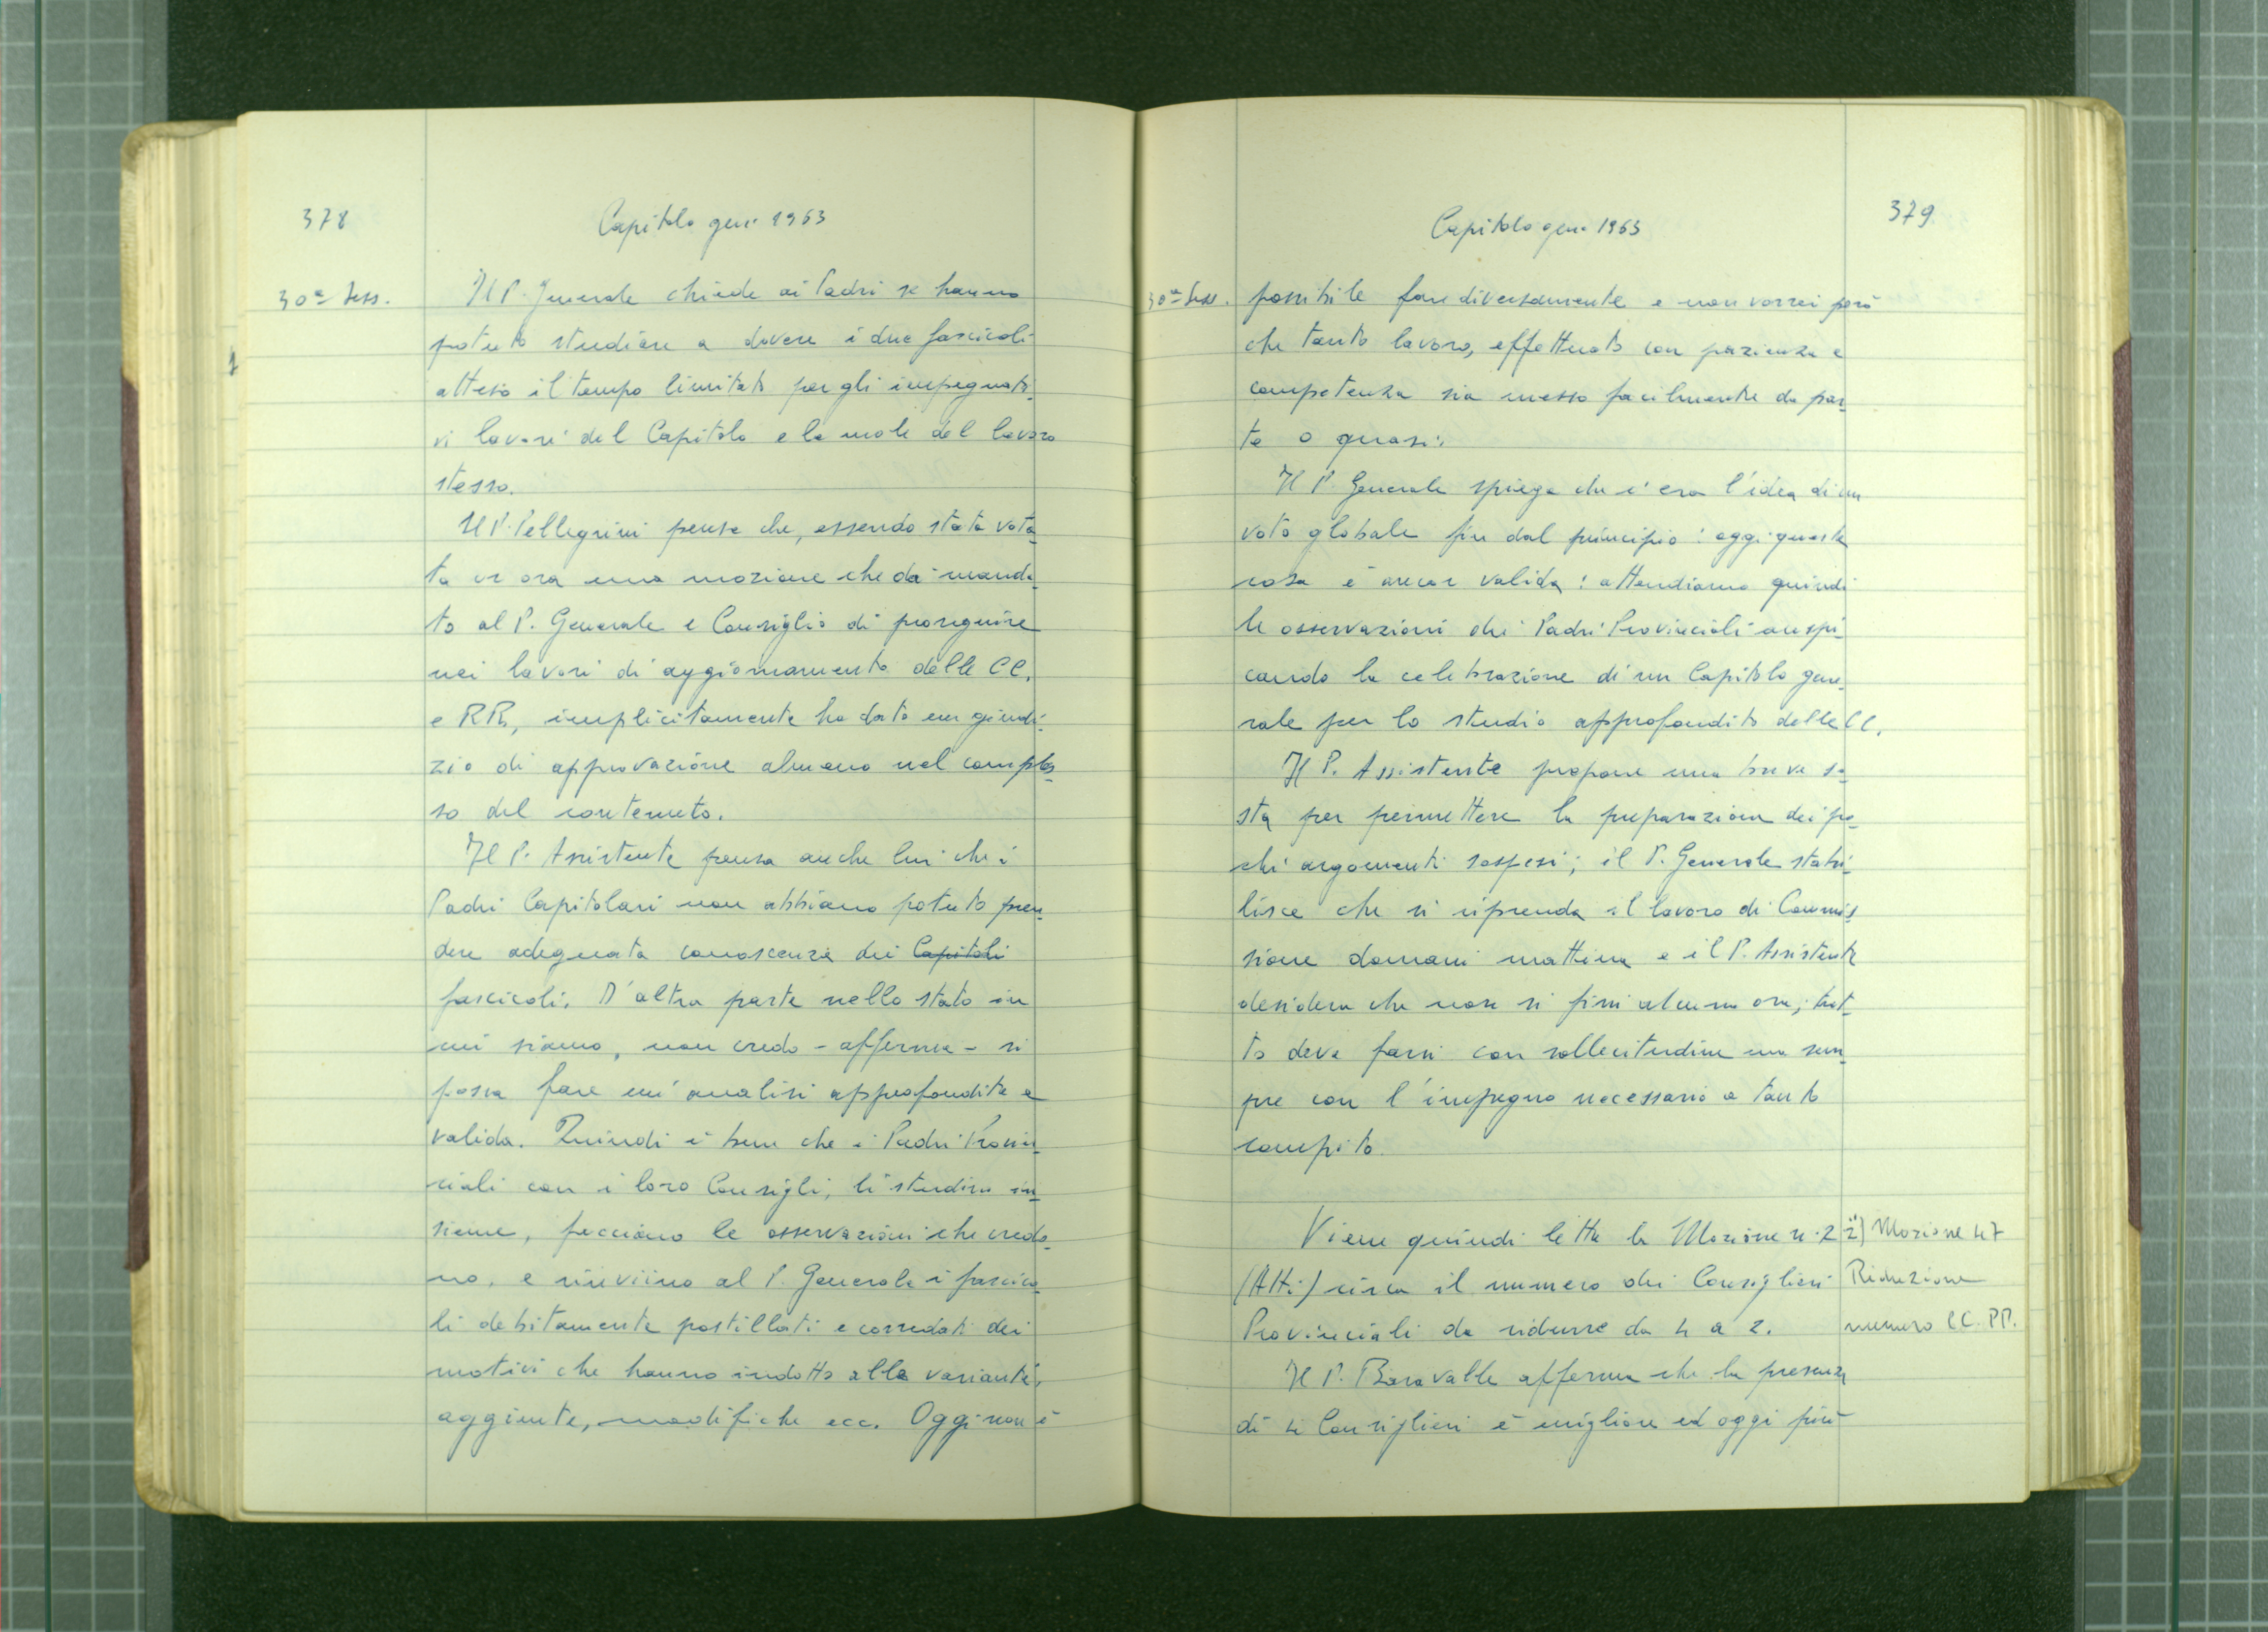 378
Capitolo gen. 1963
30ª Sess.
Il P. Generale chiede ai Padri se hanno
potuto studiare a dovere i due fascicoli
atteso il tempo limitato per gli impegnati-
vi lavori del Capitolo e la mole del lavoro
stesso.
Il P. Pellegrini pensa che, essendo stata vota-
ta or ora una mozione che dà manda-
to al P. Generale e Consiglio di proseguire
nei lavori di aggiornamento delle CC.
e RR, implicitamente ha dato un giudi-
zio di approvazione almeno nel comples-
so del contenuto.
Il P. Assistente pensa anche lui che i
Padri Capitolari non abbiano potuto pren-
dere adeguata conoscenza dei Capitoli
fascicoli. D'altra parte nello stato in
cui siamo, non credo - afferma - si
possa fare un'analisi approfondita e
valida. Quindi è bene che i Padri Provin-
ciali con i loro Consigli, li studino in-
sieme, facciano le osservazioni che credo-
no, e rinviino al P. Generale i fascico-
li debitamente postillati e corredati dei
motivi che hanno indotto alle varianti,
aggiunte, modifiche ecc. Oggi non è
379
Capitolo gen. 1963
30ª Sess.
possibile fare diversamente e non vorrei però
che tanto lavoro, effettuato con pazienza e
competenza sia messo facilmente da par-
te o quasi.
Il P. Generale spiega che c'era l'idea di un
voto globale fin dal principio: oggi questa
cosa è ancor valida: attendiamo quindi
le osservazioni dei Padri Provinciali auspi-
cando la celebrazione di un Capitolo gene-
rale per lo studio approfondito delle CC.
Il P. Assistente propone una breve so-
sta per permettere la preparazione dei po-
chi argomenti sospesi; il P. Generale stabi-
lisce che si riprenda il lavoro di Commis-
sione domani mattina e il P. Assistente
desidera che non si fissi alcuna ora; tut-
to deve farsi con sollecitudine ma sem-
pre con l'impegno necessario a tanto
compito.
Viene quindi letta la Mozione n. 2
(Atti) circa il numero dei Consiglieri
Provinciali da ridurre da 4 a 2.
2) Mozione 47
Riduzione
numero CC. PP.
Il P. Baravalle afferma che la presenza
di 4 Consiglieri è migliore ed oggi più